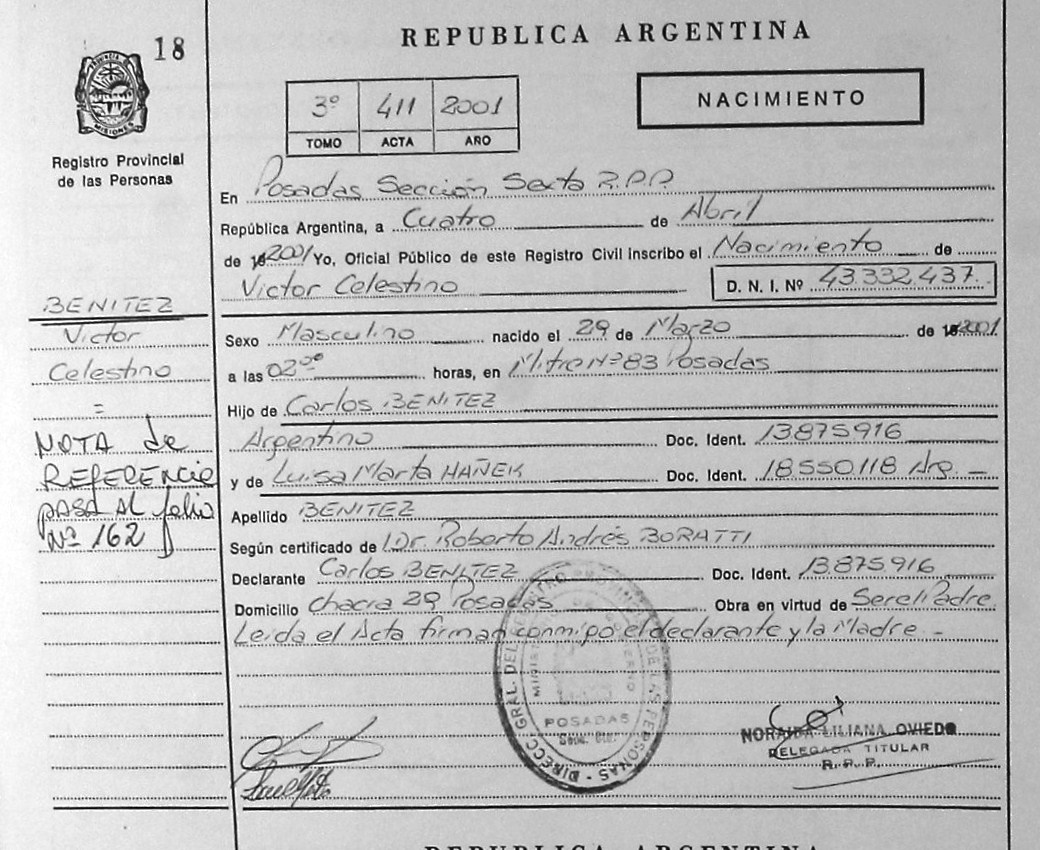 18
REPUBLICA ARGENTINA
PROVINCIA DE
MISIONES
Registro Provincial
de las Personas
3º 411 2001
TOMO ACTA AÑO
NACIMIENTO
En Posadas Sección Sexta R.P.P.
República Argentina, a Cuatro de Abril
de 2001 Yo, Oficial Público de este Registro Civil Inscribo el Nacimiento de
Victor Celestino D. N. I. Nº 43.332.437.
Sexo Masculino nacido el 29 de Marzo de 2001
a las 02ºº horas, en Mitre Nº 83 Posadas
Hijo de Carlos BENITEZ
Argentino Doc. Ident. 13875916
y de Luisa Marta HAÑEK Doc. Ident. 18.550.118 Arg. _
Apellido BENITEZ
Según certificado de Dr. Roberto Andrés BORATTI
Declarante Carlos BENITEZ Doc. Ident. 13875916
Domicilio Chacra 29 Posadas Obra en virtud de Ser el Padre
Leida el Acta firman conmigo el declarante y la Madre _
BENITEZ
Victor
Celestino
=
NOTA de
REFERENCIA
PASA AL folio
Nº 162
DIRECC. GRAL. DEL REGISTRO PROVINCIAL DE LAS PERSONAS
MINISTERIO DE GOBIERNO
POSADAS
NORAIDA LILIANA OVIEDO
DELEGADA TITULAR
R. P. P.
REPUBLICA ARGENTINA